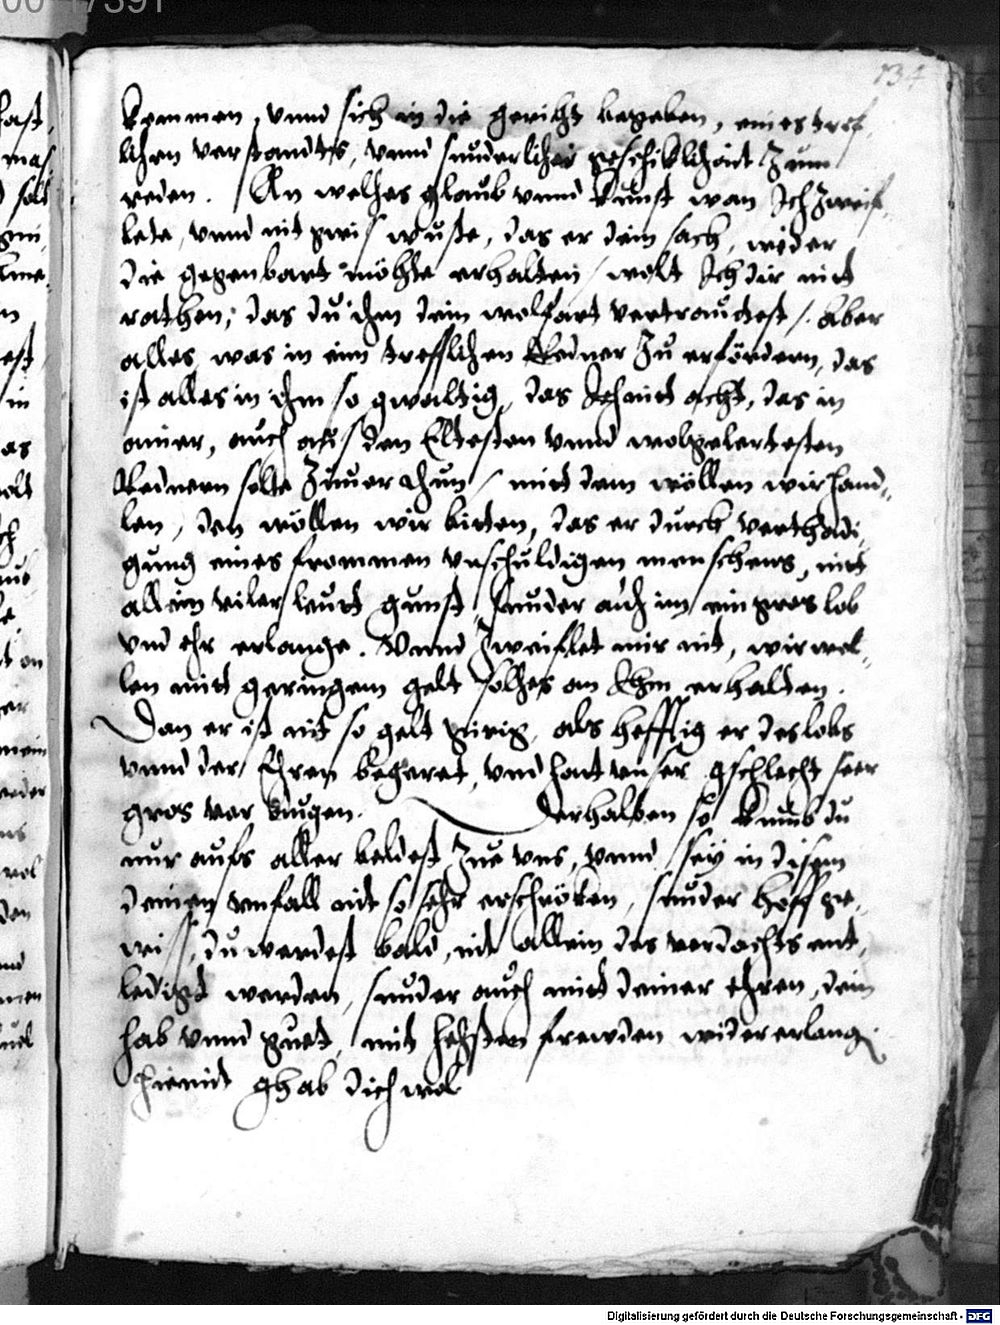 134
kommen, vnnd sich in die gericht begeben, eines tref-
lichen verstandts, vnnd sunderlicher geschiklichait zum
reden. An welhes glaub vnnd kunst wan Ich zweif-
lete, vnnd nit gwis wuste, das er dein sach, wider
die gegenbart möchte erhalten / wolt Ich dir nit
rathen, das du ihm dein wolfart vertrautest /. Aber
alles, was in eim trefflichen Redner zu erfordern, das
ist alles in ihm so gwaltig, das Ich nit acht, das in
ainer, auch aus den Eltesten vnnd wolgelertesten
Rednern solte zuuor thun / mit dem wöllen wir hand-
len, den wöllen wir bitten, das er durch verthädi-
gung eines frommen vnschuldigen menschens, nit
allein viler leutt gunst, sunder auch im ein gros lob
vnd ehr erlange. Vnnd zweiflet mir nit, wir wel-
len mit geringem gelt solhes an Ihm erhalten.
Dan er ist nit so gelt girig, als hefftig er des lobs
vnnd der Ehren begeret, vnd hat vnser gschlecht seer
gros vor augen. Derhalben so kumb du
nur aufs aller beldest zue vns, vnnd sey in disem
deinem vnfall nit so sehr erschröken, sunder hoff ge-
wiss, du werdest bald, nit allein des verdachts ent-
lediget werden, sunder auch mit deiner ehren, dein
hab vnnd guet, mit hechsten frewden wider erlang
hiemit ghab dich wol
Digitalisierung gefördert durch die Deutsche Forschungsgemeinschaft - DFG